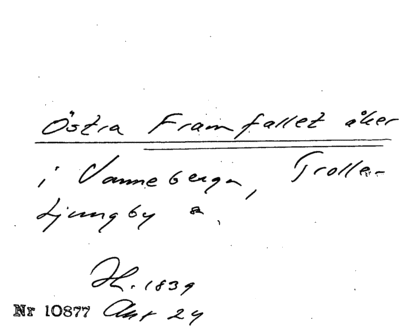 Östra Framfallet åker
i Vanneberga, Trolle-
Ljungby s.
H. 1839
Nr 10877 Akt 24